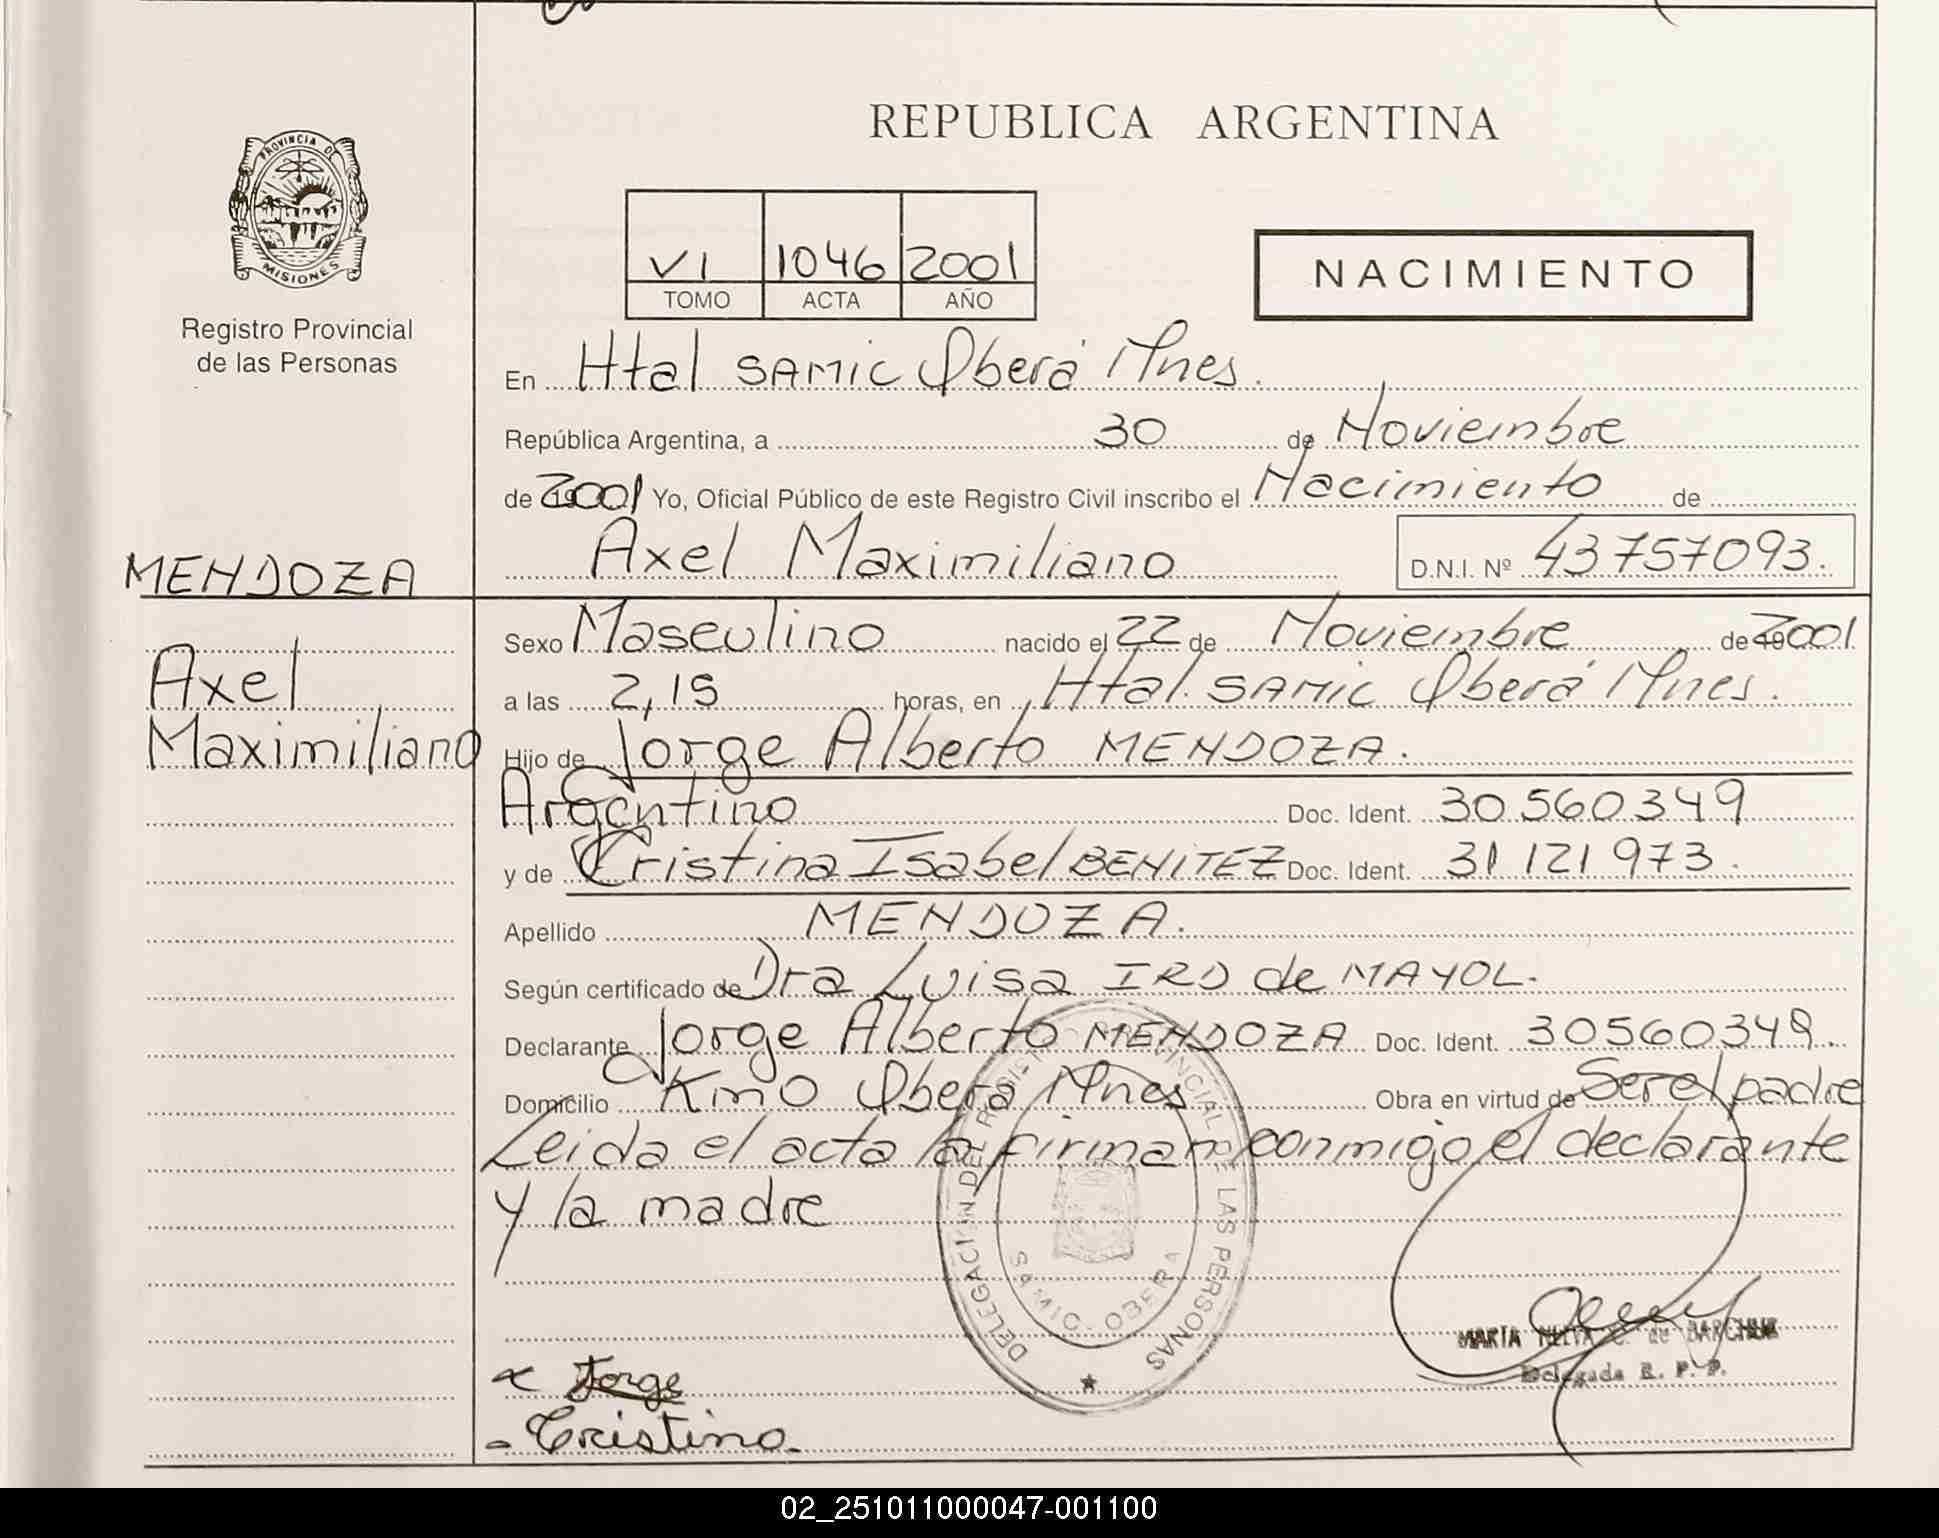 REPUBLICA ARGENTINA
PROVINCIA DE
MISIONES
Registro Provincial
de las Personas
VI 1046 2001
TOMO ACTA AÑO
NACIMIENTO
En Htal SAMIC Oberá Mnes.
República Argentina, a 30 de Noviembre
de 2001 Yo, Oficial Público de este Registro Civil inscribo el Nacimiento de
Axel Maximiliano D.N.I. Nº 43757093.
MENDOZA
Axel
Maximiliano
Sexo Masculino nacido el 22 de Noviembre de 2001
a las 2,15 horas, en Htal. SAMIC Oberá Mnes.
Hijo de Jorge Alberto MENDOZA.
Argentino Doc. Ident. 30560349
y de Cristina Isabel BENITEZ Doc. Ident. 31121973.
Apellido MENDOZA.
Según certificado de Dra Luisa IRD de MAYOL.
Declarante Jorge Alberto MENDOZA Doc. Ident. 30560349.
Domicilio Km0 Oberá Mnes Obra en virtud de Ser el padre
Leida el acta la firman conmigo el declarante
y la madre
DELEGACION DEL REGISTRO PROVINCIAL DE LAS PERSONAS
SAMIC - OBERA
MARIA de
Delegada R. P. P.
Jorge
Cristina
02_251011000047-001100